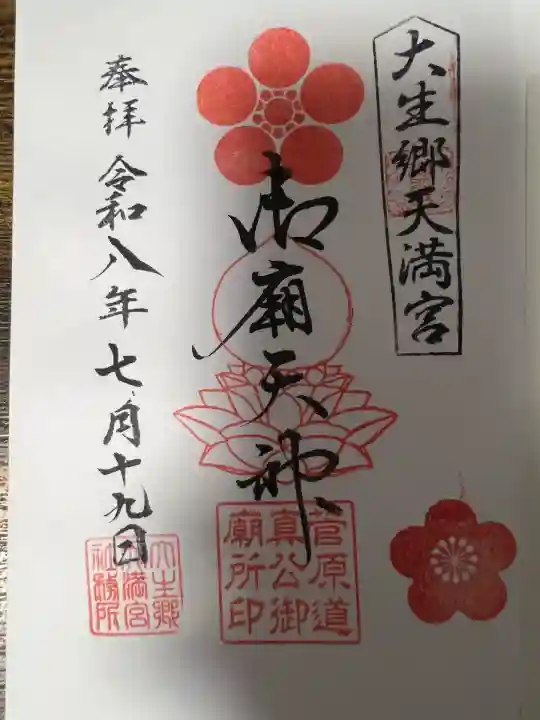 大生郷天満宮
御廟天神
菅原道
真公御
廟所印
奉拝 令和八年七月十九日
大生郷
天満宮
社務所